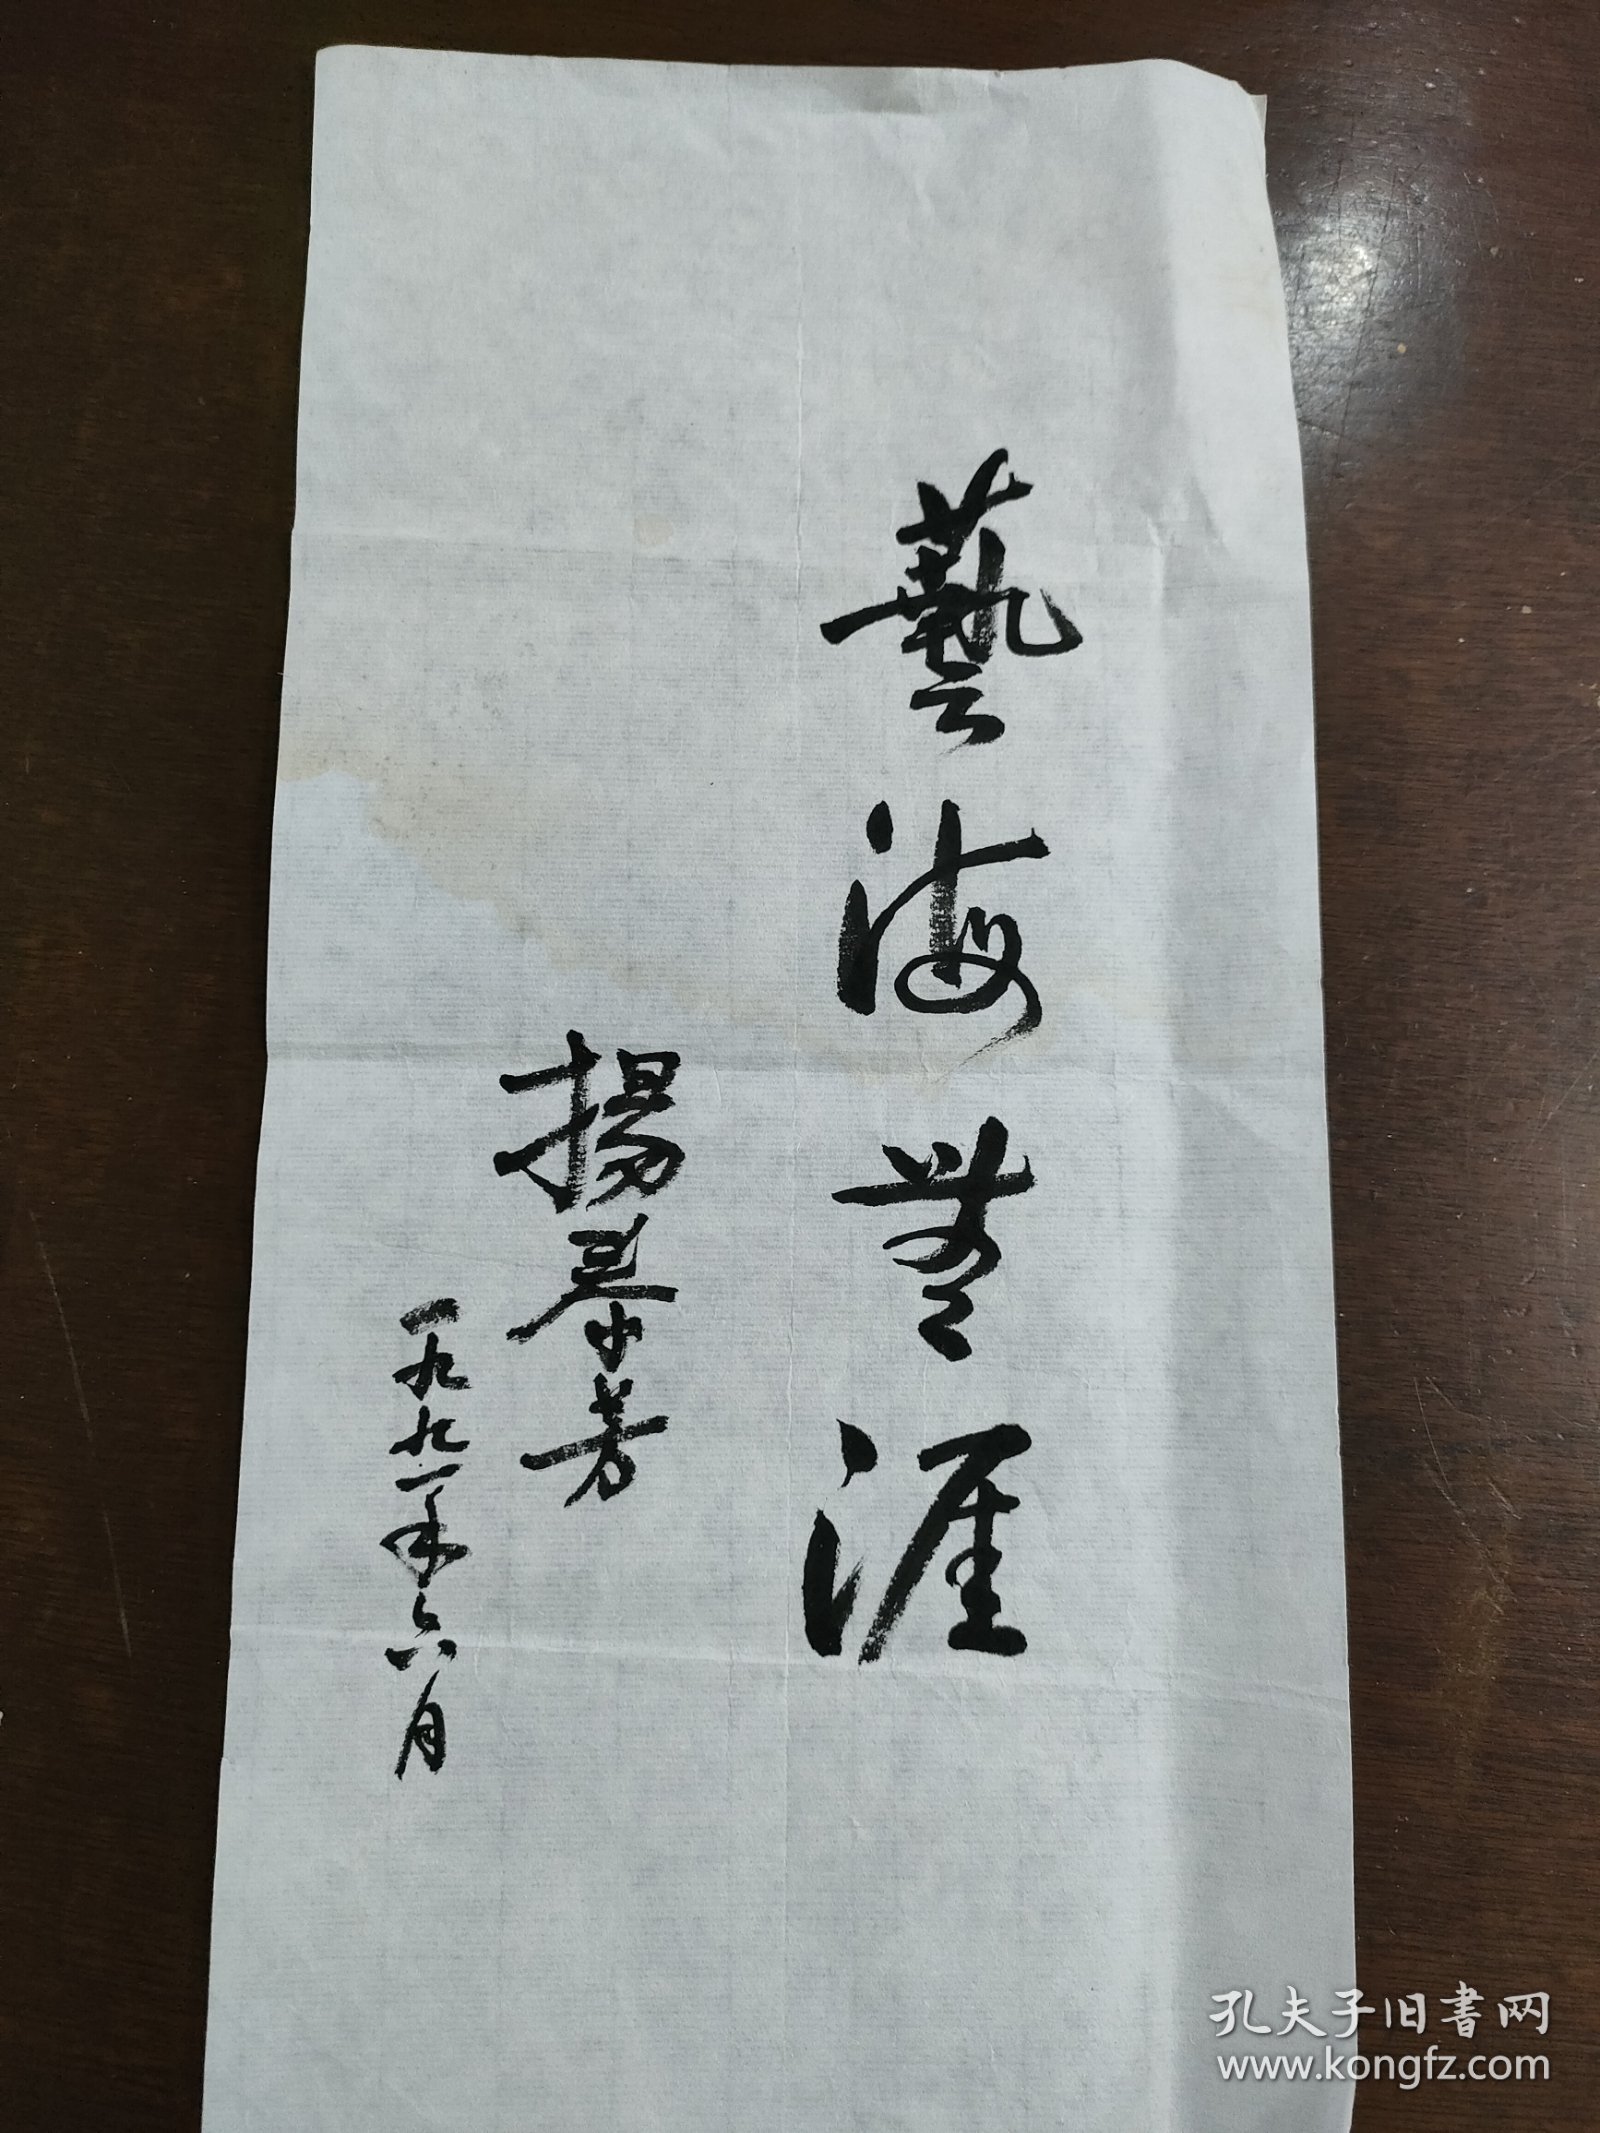 藝海無涯
楊慕芳
一九九一年六月
孔夫子旧书网
www.kongfz.com